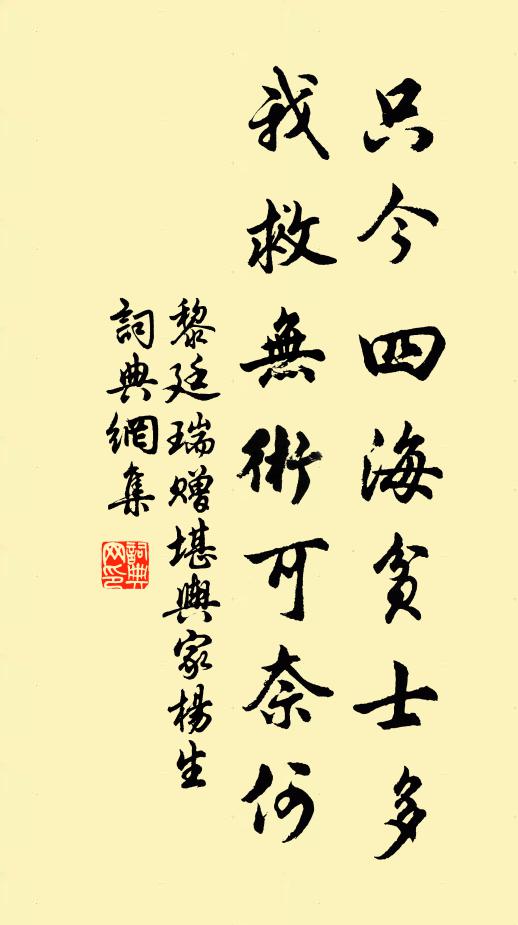 只今四海貧士多
我救無術可奈何
黎廷瑞贈堪輿家楊生
詞典網集
詞典網印